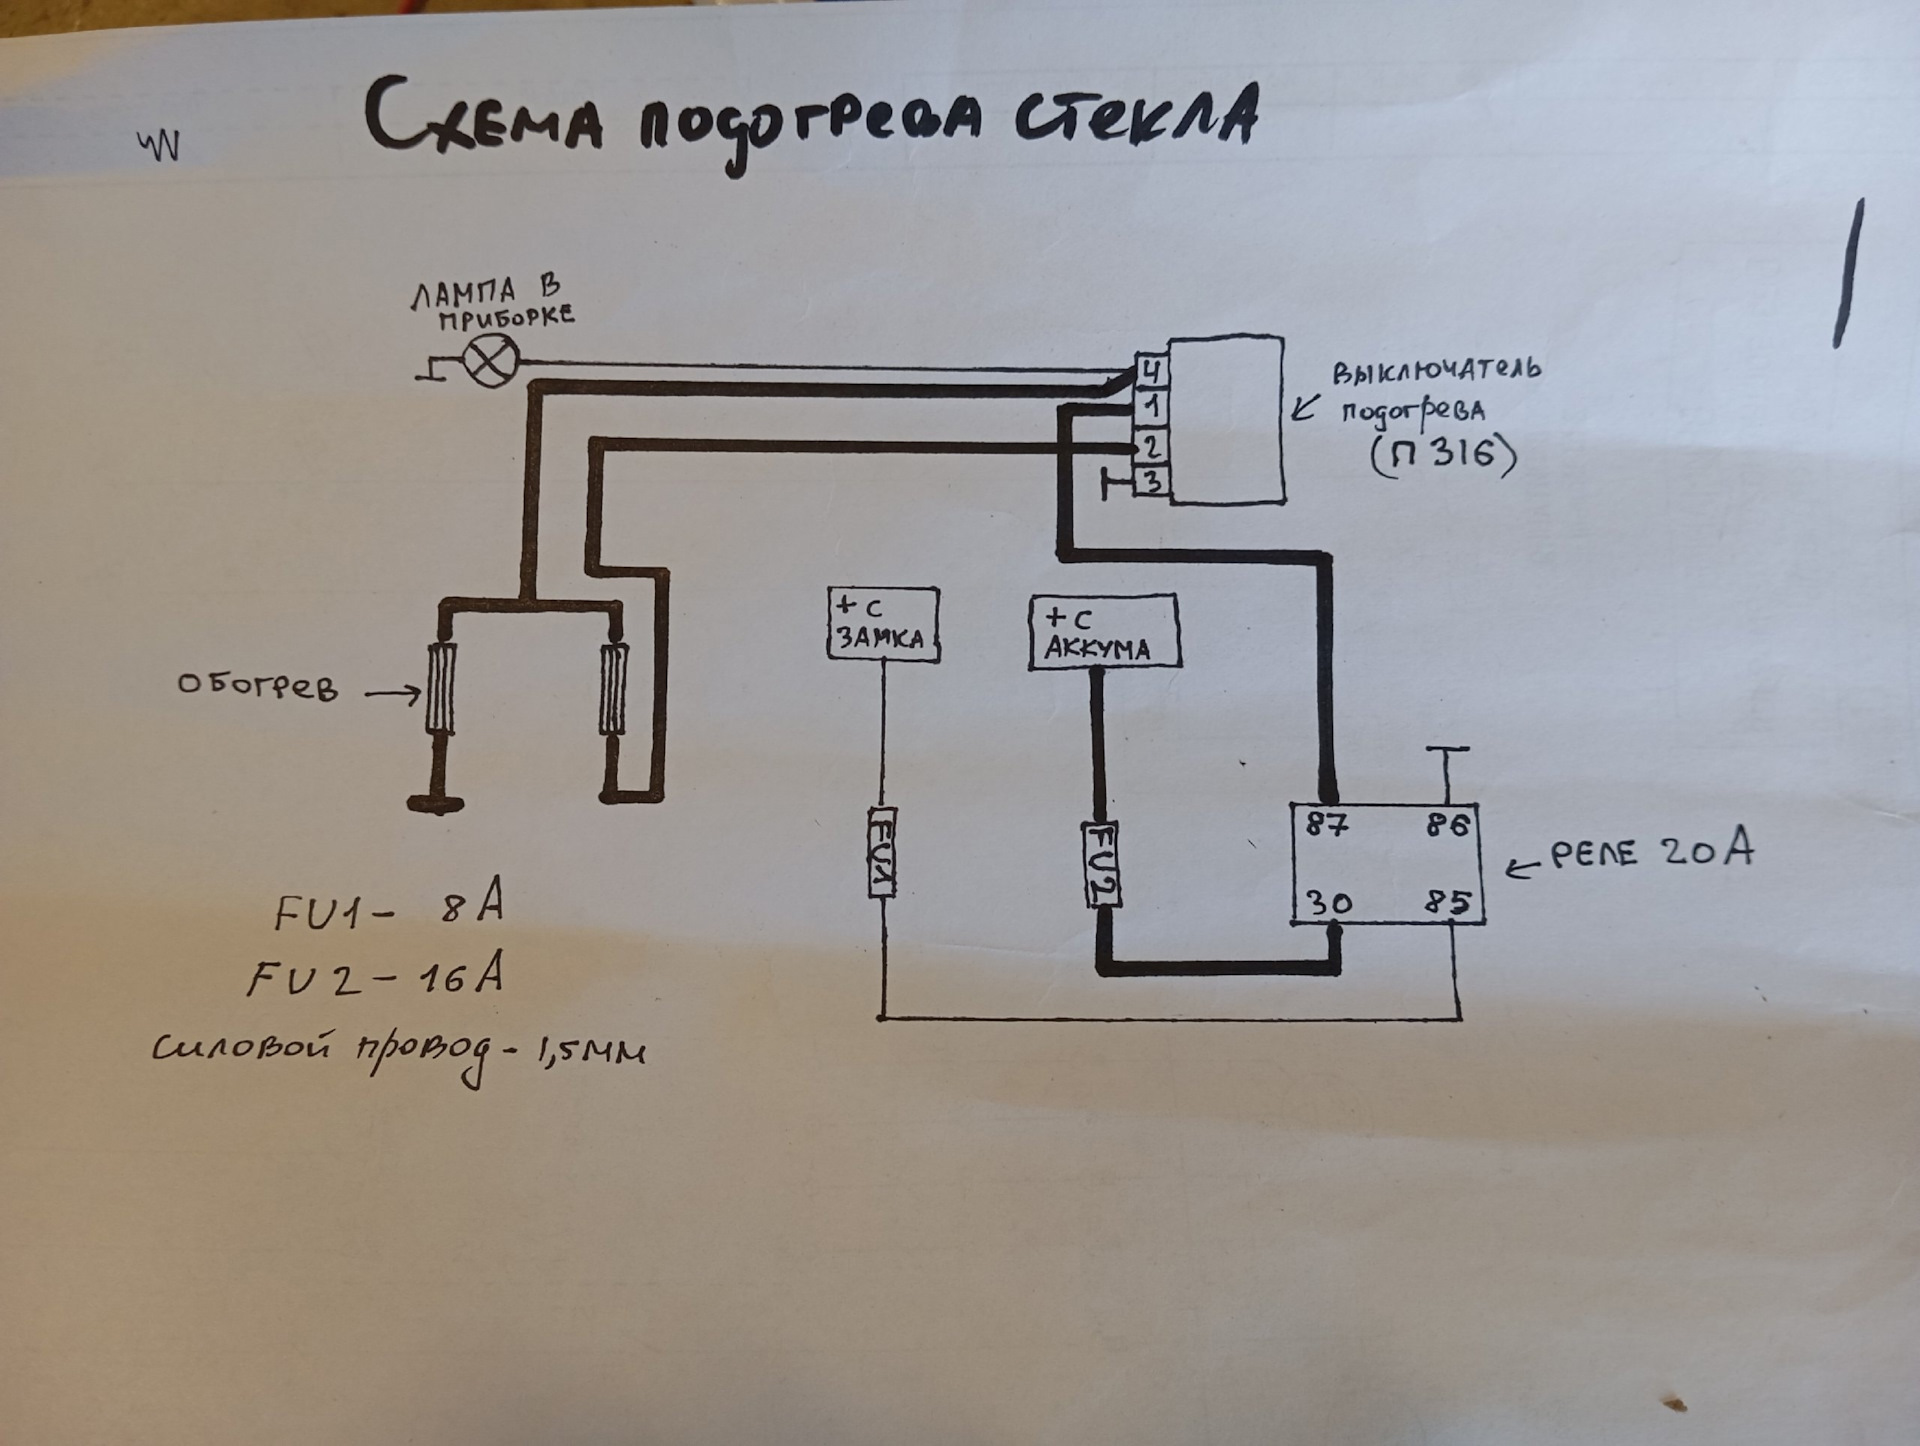 Схема подогрева стекла
ЛАМПА В
ПРИБОРКЕ
4
1
2
3
ВЫКЛЮЧАТЕЛЬ
подогрева
(П 316)
+ С
ЗАМКА
+ С
АККУМА
ОБОГРЕВ
FU1
FU2
87 86
30 85
РЕЛЕ 20 А
FU1 - 8 А
FU2 - 16 А
силовой провод - 1,5мм